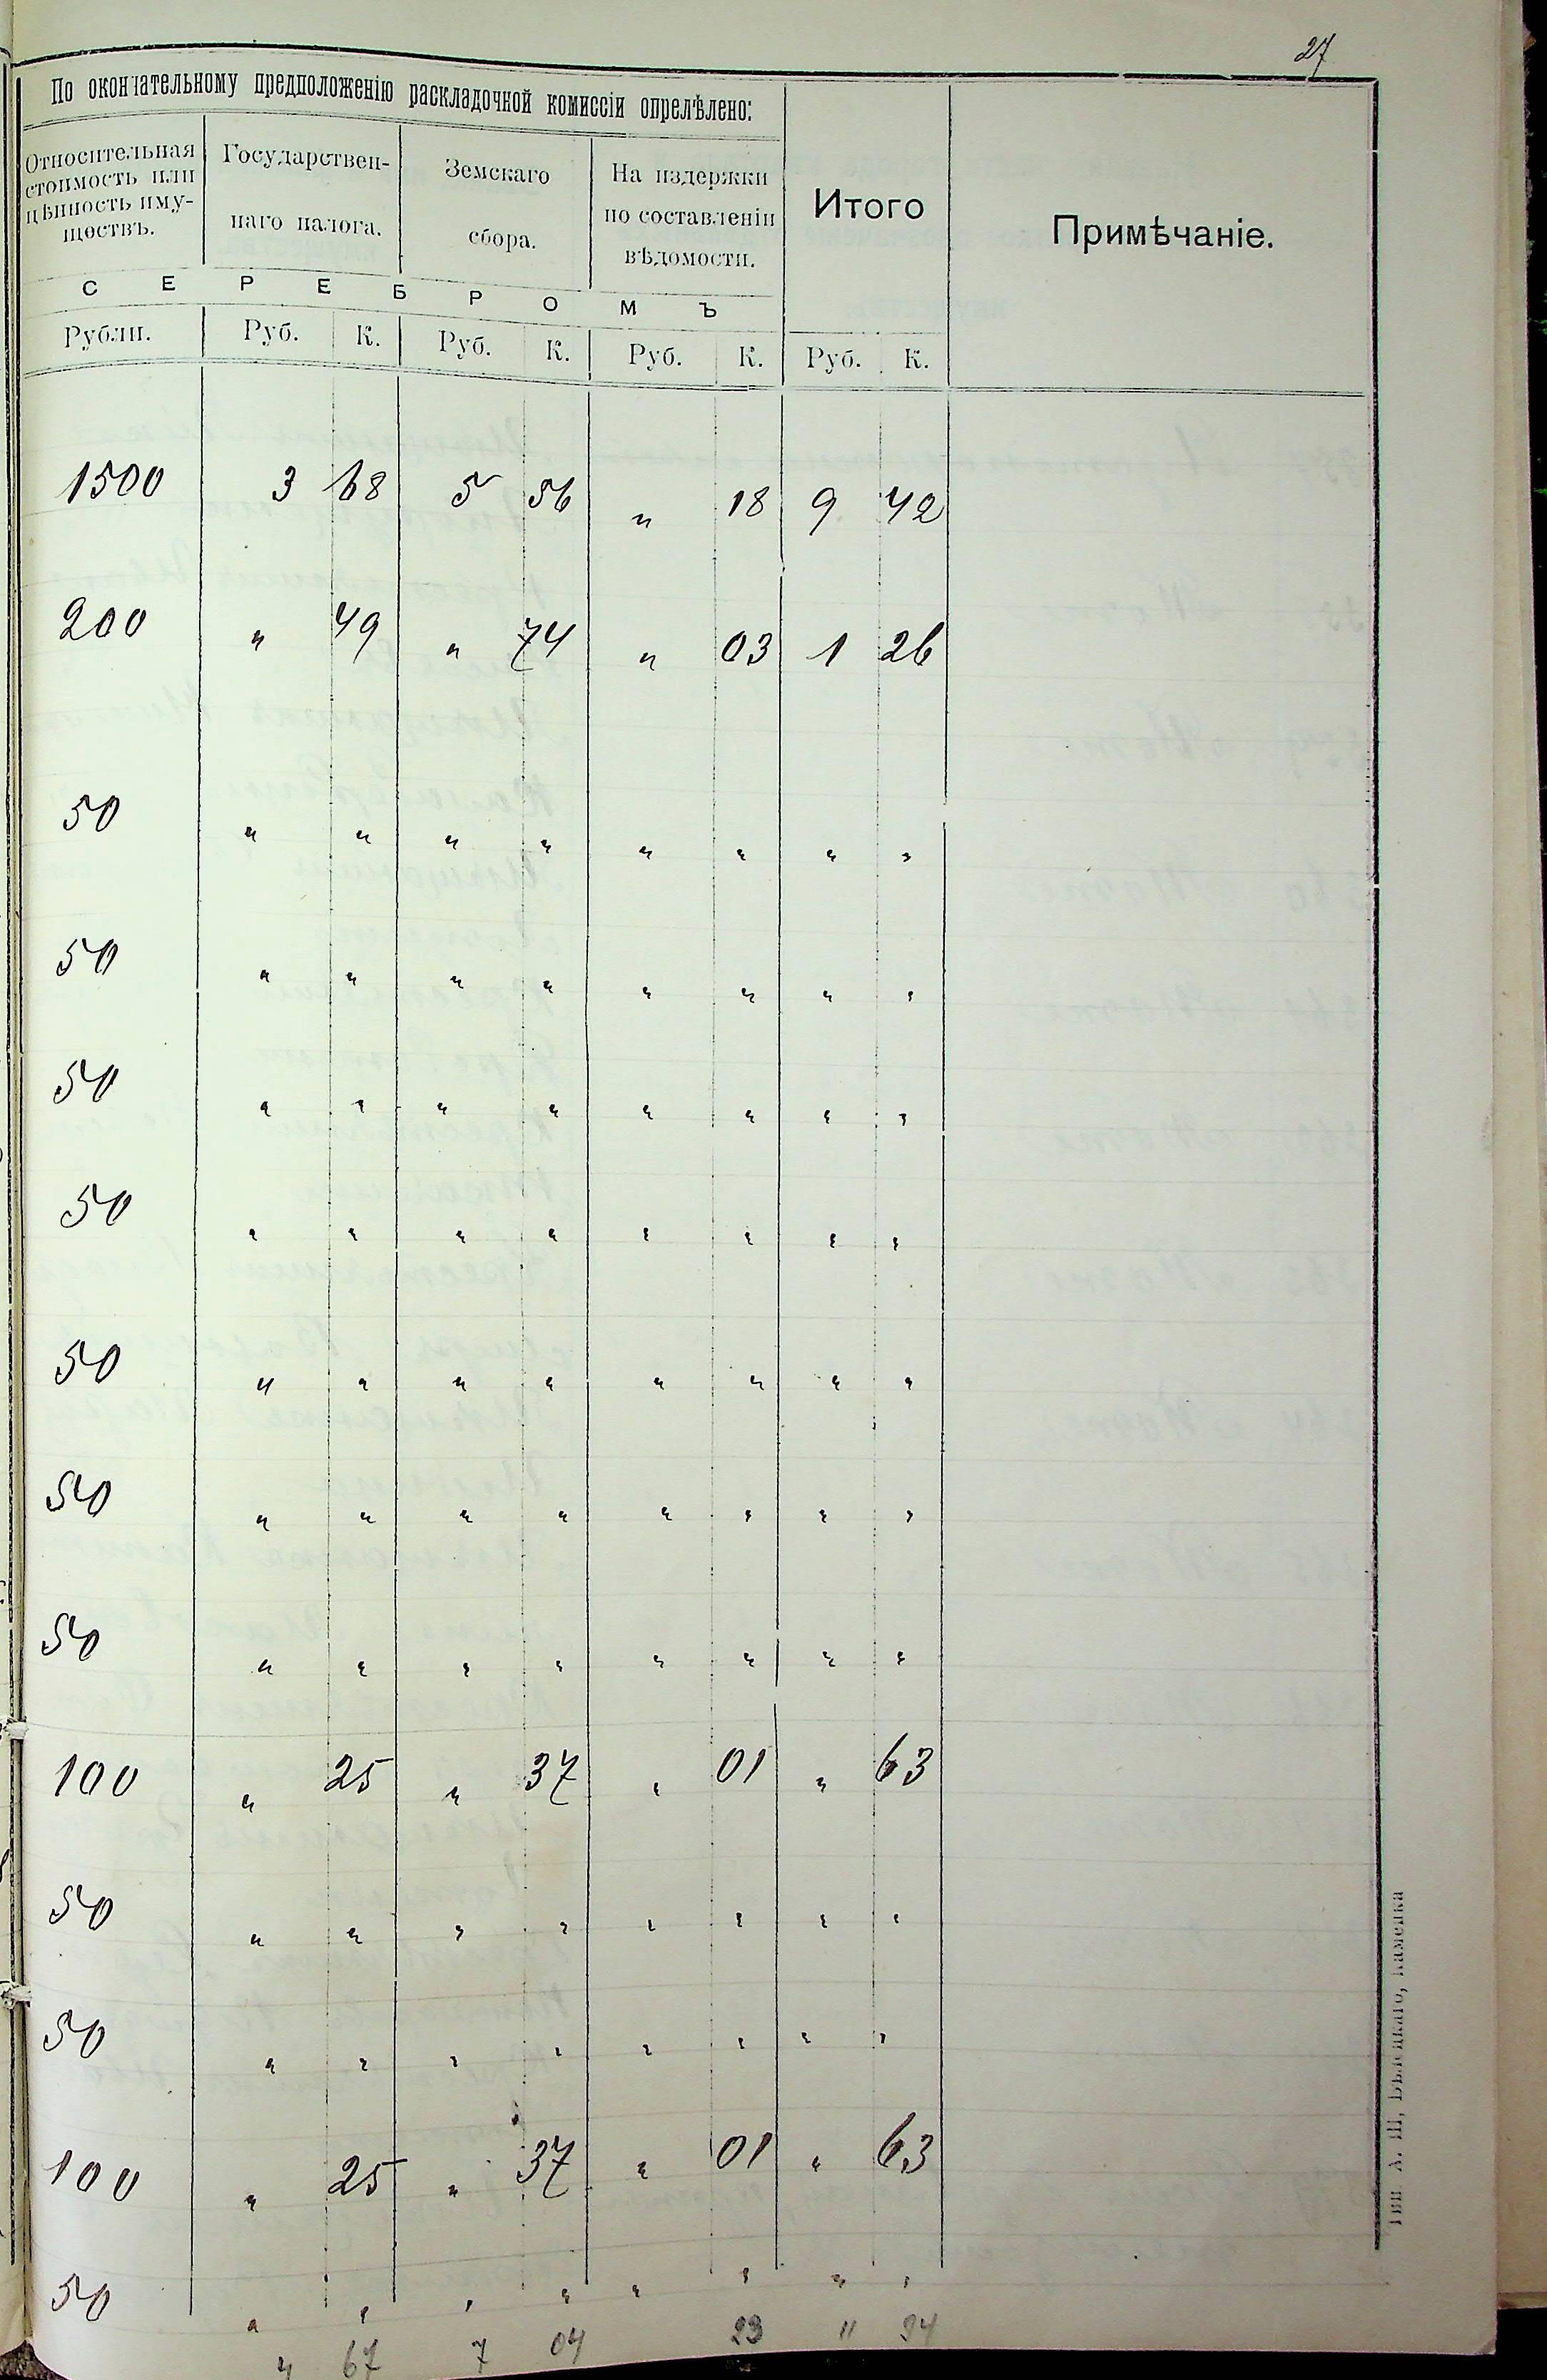 27
По окончательному предположенію раскладочной комиссіи опредѣлено:
Относительная стоимость или цѣнность имуществъ.
Государственнаго налога.
Земскаго сбора.
На издержки по составленіи вѣдомости.
Итого
Примѣчаніе.
С Е Р Е Б Р О М Ъ
Рубли. Руб. К. Руб. К. Руб. К. Руб. К.
1500 3 68 5 56 " 18 9 42
200 " 49 " 74 " 03 1 26
50 " " " " " " " "
50 " " " " " " " "
50 " " " " " " " "
50 " " " " " " " "
50 " " " " " " " "
50 " " " " " " " "
50 " " " " " " " "
100 " 25 " 37 " 01 " 63
50 " " " " " " " "
50 " " " " " " " "
100 " 25 " 37 " 01 " 63
50 " " " " " " " "
4 67 7 04 23 11 94
Тип. А. Ш, Бѣлецкаго, Каменка